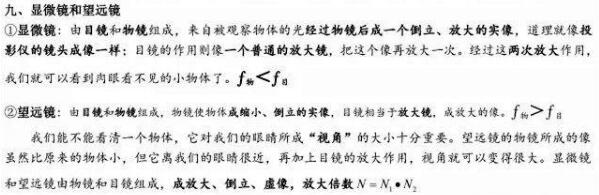 九、显微镜和望远镜
①显微镜：由目镜和物镜组成，来自被观察物体的光经过物镜后成一个倒立、放大的实像，道理就像投
影仪的镜头成像一样；目镜的作用则像一个普通的放大镜，把这个像再放大一次。经过这两次放大作用，
我们就可以看到肉眼看不见的小物体了。f物＜f目
②望远镜：由目镜和物镜组成，物镜使物体成缩小、倒立的实像，目镜相当于放大镜，成放大的像。f物＞f目
我们能不能看清一个物体，它对我们的眼睛所成“视角”的大小十分重要。望远镜的物镜所成的像
虽然比原来的物体小，但它离我们的眼睛很近，再加上目镜的放大作用，视角就可以变得很大。显微镜
和望远镜由物镜和目镜组成，成放大、倒立、虚像，放大倍数 N＝N₁•N₂